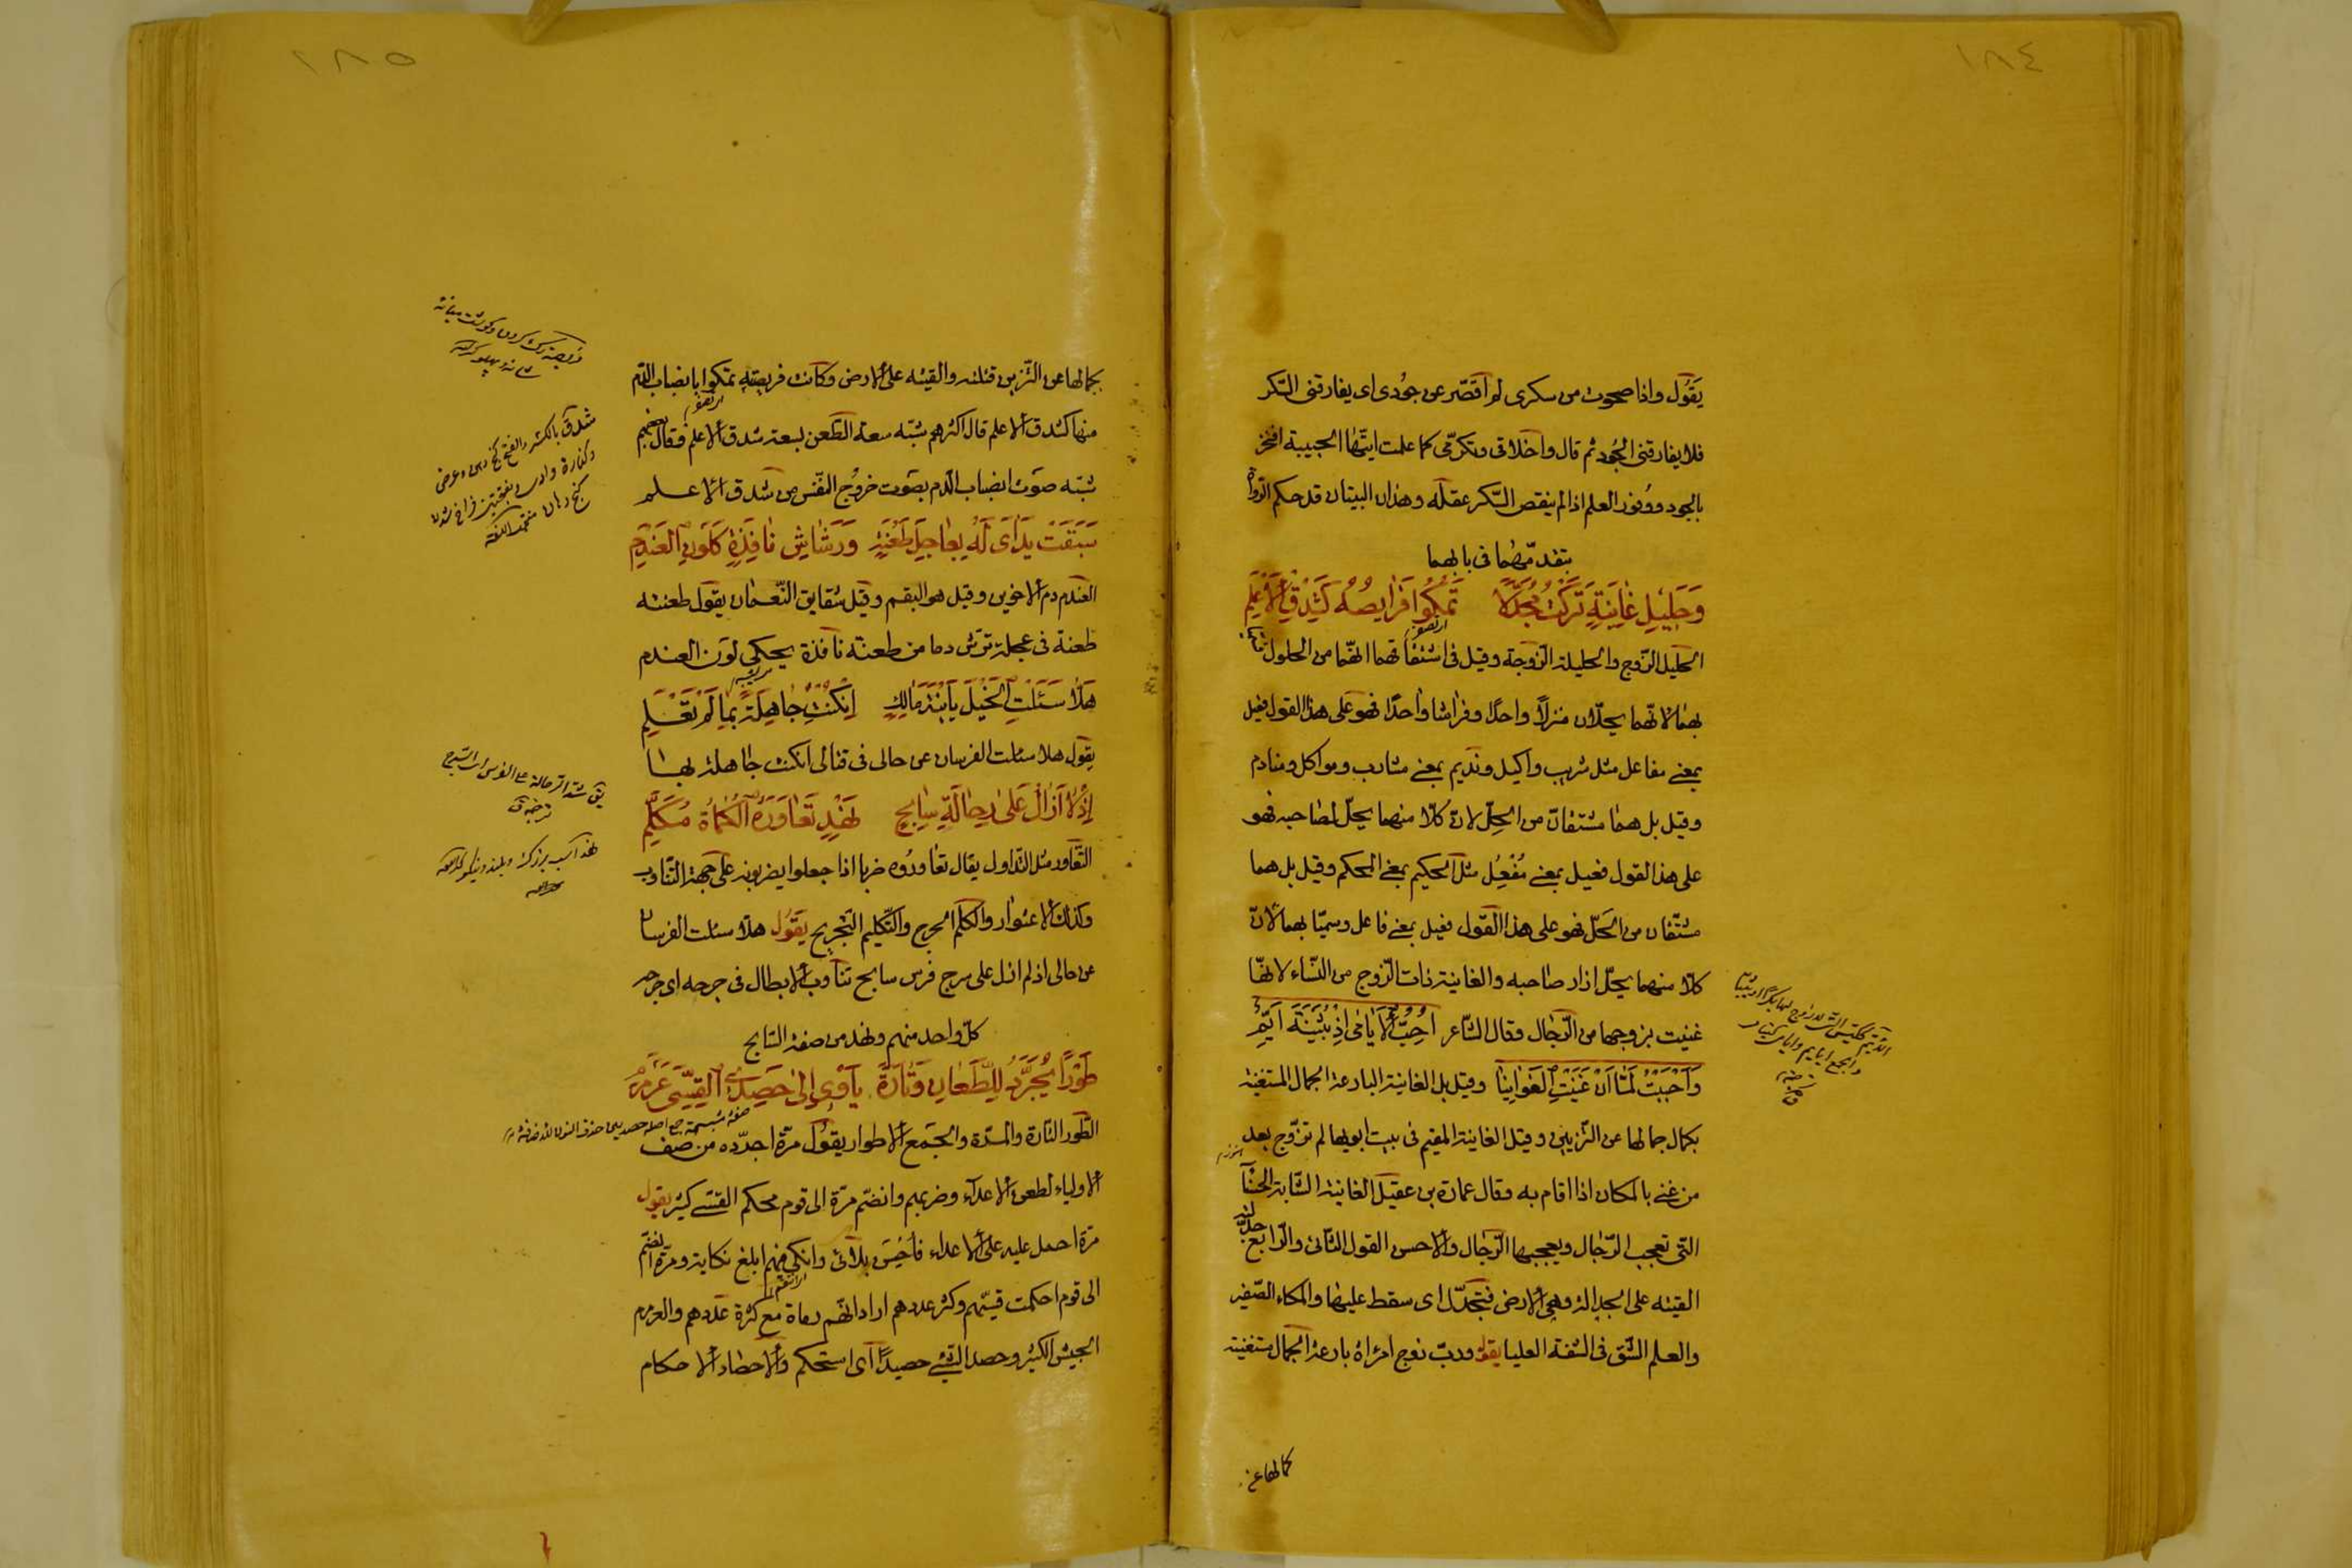 ١٨٤
يَقُول واذا صحوت من سكرى لم اقصّر عن جُودى اى يفارقنى السّكر
فلا يفارقنى الجُود ثم قال واخلاقى وتكرّمى كما علمت ايتها الحبيبة افتخر
بالجود ووفور العلم اذا لم ينقص السّكر عقله وهذان البيتان قد حكم الرّواة
بتقدّمهما فى بابهما
وَحَلِيْلِ غٰانِيَةٍ تَرَكْتُ مُجَدَّلًا تَمْكُوا فَرٰايصُهُ كَشِدْقِ الْاَعْلَمِ
الحليل الزّوج والحليلة الزّوجة وقيل فى اشتقاقهما انّهما من الحلول
بهما لانّهما يحلّان منزلاً واحدًا وفراشا واحدًا فهو على هذا القول فعيل
بمعنى مفاعل مثل شريب واكيل ونديم بمعنى مشارب ومواكل ومنادم
وقيل بل هما مشتقان من الحِلّ لان كلّا منهما يحلّ لصاحبه فهو
على هذا القول فعيل بمعنى مُفْعِل مثل الحكيم بمعنى المحكم وقيل بل هما
مشتقان من الحَلّ فهو على هذا القول فعيل بمعنى فاعل وسميّا بهما لانّ
كلّا منهما يحلّ ازار صاحبه والغانية ذات الزّوج من النّساء لانّها
غنيت بزوجها من الرّجال وقال الشّاعر اُحِبُّ الْاَيٰامٰى اِذْ بُثَيْنَةُ اَيِّمُ
وَاَحْبَبْتُ لَمّٰا اَنْ غَنَيْتِ الْغَوٰانِيا وقيل بل الغانية البارعة الجمال المستغنية
بكمال جمالها عن التّزيين وقيل الغانية المقيم فى بيت ابويها لم تزوّج بعد
من غنى بالمكان اذا اقام به وقال عمارة بن عقيل الغانية الشّابة الحسنآ
التى تعجب الرّجال ويعجبها الرّجال والاحسن القول الثّانى والرّابع جدّلته
القيته على الجدالة وهى الارض فتجدّل اى سقط عليها والمكاء الصّفير
والعلم الشّق فى الشفة العليا يقول وربّ زوج امراة بارعة الجمال مستغنية
بجمالها عن
١٨٥
بجمالها عن التّزين قتلته والقيته على الارض وكانت فريصته تمكوا بانصباب الدّم
منها كشدق الاعلم قال اكثرهم شبّه سعة الطّعن بسعة شدق الاعلم وقال بعضهم
شبّه صوت انصباب الدّم بصوت خروج النّفس من شدق الاعلم
سَبَقَتْ يَدٰاىَ لَهُ بِعٰاجِلِ طَعْنَةٍ وَرَشٰاشِ نٰافِذَةٍ كَلَوْنِ الْعَنْدَمِ
العندم دم الاخوين وقيل هو البقم وقيل شقايق النّعمان يقول طعنته
طعنة فى عجلة ترش دما من طعنة نافذة يحكى لون العندم
هَلّٰا سَئَلْتِ الْخَيْلَ يَا ابْنَةَ مٰالِكٍ اِنْ كُنْتِ جٰاهِلَةً بِمٰا لَمْ تَعْلَمِ
يقول هلا سئلت الفرسان عن حالى فى قتالى ان كنت جاهلة بها
اِذْ لٰا اَزٰالُ عَلىٰ رِحٰالَةِ سٰابِحٍ نَهْدٍ تَعٰاوَرَهُ الْكُمٰاةُ مُكَلَّمِ
التّعاور مثل التّداول يقال تعاوروه ضربا اذا جعلوا يضربونه على جهة التّناوب
وكذلك الاعتوار والكلم الجرح والتّكليم التّجريح يَقُول هلّا سئلت الفرسان
عن حالى اذ لم ازل على سرج فرس سابح تناوب الابطال فى جرحه اى جرحه
كلّ واحد منهم ونهد من صفة السّابح
طَوْرًا يُجَرَّدُ لِلطَّعٰانِ وَتٰارَةً يَأوِى اِلىٰ حَصِدِ الْقِسِىِّ عَرَمْرَمِ
الطّور التّارة والمرّة والجمع الاطوار يقول مرّة اجرّده من صف
الاولياء لطعن الاعدآء وضربهم وانضمّ مرّة الى قوم محكم القسّى كثير يقول
مرّة احمل عليه على الاعداء فاحسن بلآئى وانكى فيهم ابلغ نكاية ومرّة انضمّ
الى قوم احكمت قسيّهم وكثر عددهم اراد انّهم رماة مع كثرة عددهم والعرمرم
الجيش الكثير وحصد الشّئ حصيدًا اى استحكم والاحصاد الاحكام